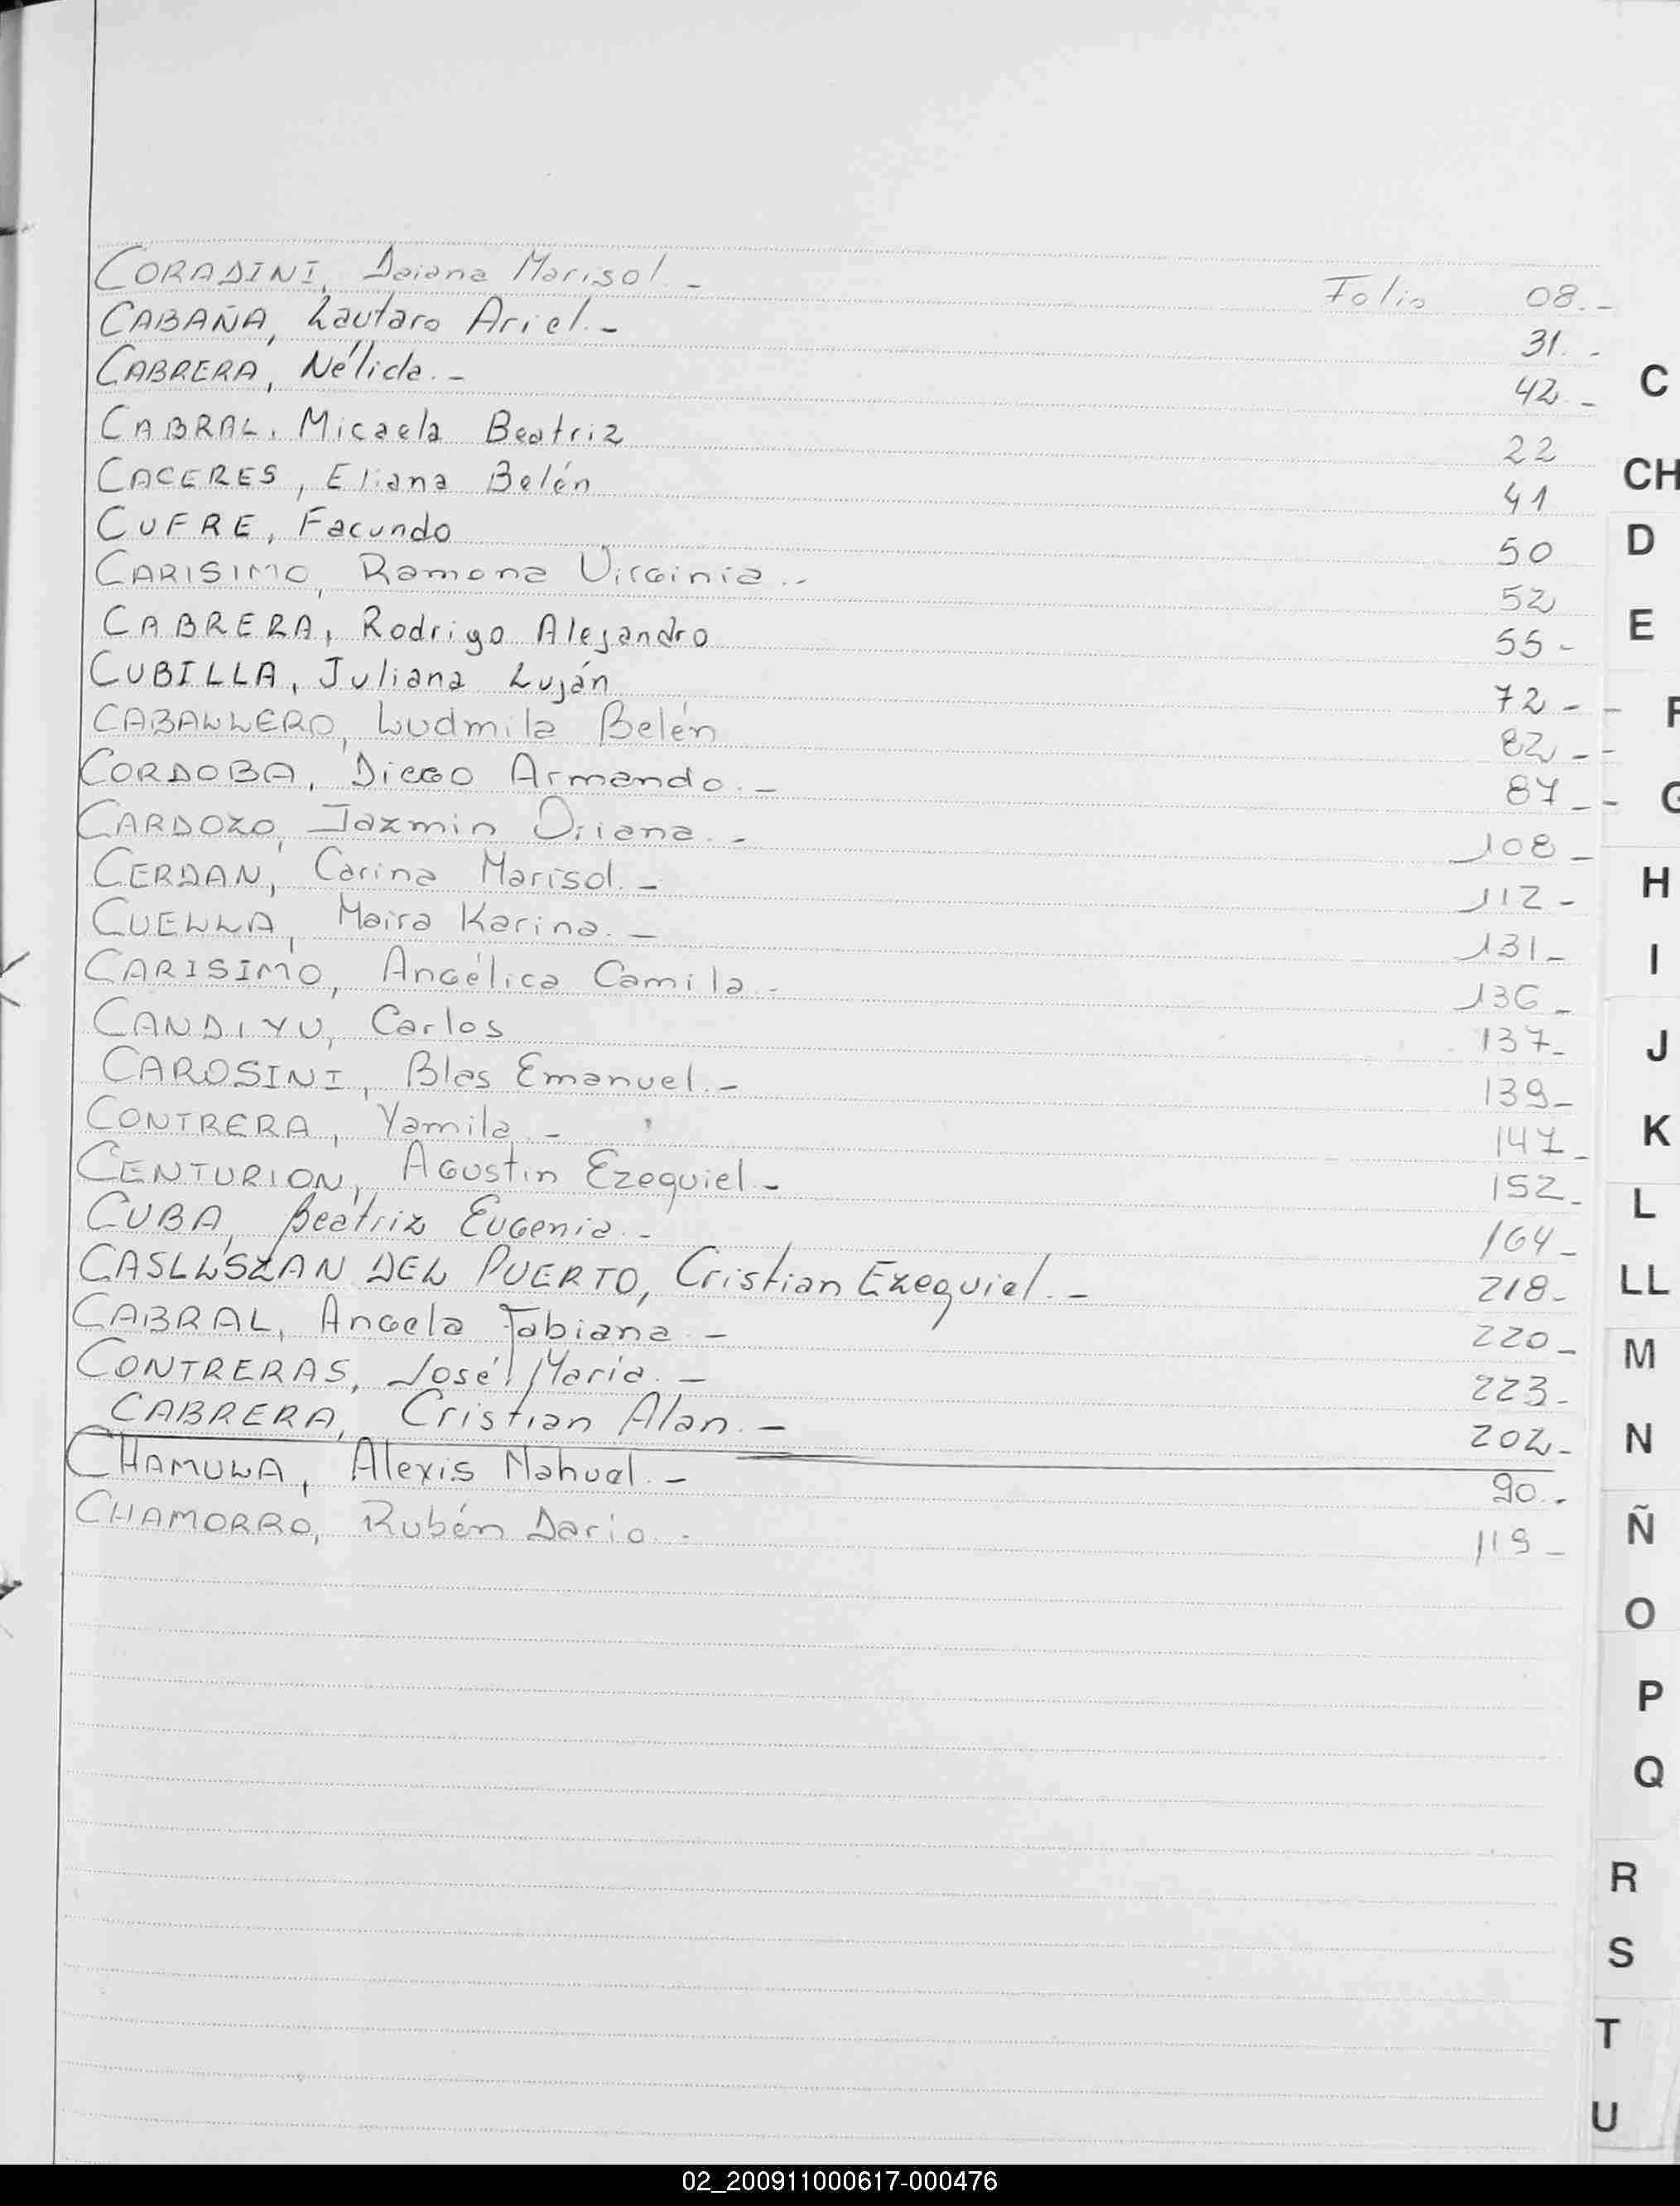 CORADINI, Daiana Marisol.- Folio 08.-
CABAÑA, Lautaro Ariel.- 31.-
CABRERA, Nélida.- 42.-
CABRAL, Micaela Beatriz 22
CACERES, Eliana Belén 41
CUFRE, Facundo 50
CARISIMO, Ramona Virginia.- 52
CABRERA, Rodrigo Alejandro 55-
CUBILLA, Juliana Luján 72-
CABALLERO, Ludmila Belén 82-
CORDOBA, Diego Armando.- 87-
CARDOZO, Jazmin Oriana.- 108-
CERDAN, Carina Marisol.- 112-
CUELLA, Maira Karina.- 131-
CARISIMO, Angélica Camila- 136-
CANDIYU, Carlos 137-
CAROSINI, Blas Emanuel.- 139-
CONTRERA, Yamila.- 147-
CENTURION, Agustin Ezequiel.- 152-
CUBA, Beatriz Eugenia.- 164-
DEL PUERTO, Cristian Ezequiel.- 218-
CABRAL, Angela Fabiana- 220-
CONTRERAS, José Maria.- 223-
CABRERA, Cristian Alan.- 202-
CHAMULA, Alexis Nahuel.- 90.-
CHAMORRO, Rubén Dario.- 119-
C
CH
D
E
F
G
H
I
J
K
L
LL
M
N
Ñ
O
P
Q
R
S
T
U
02_200911000617-000476